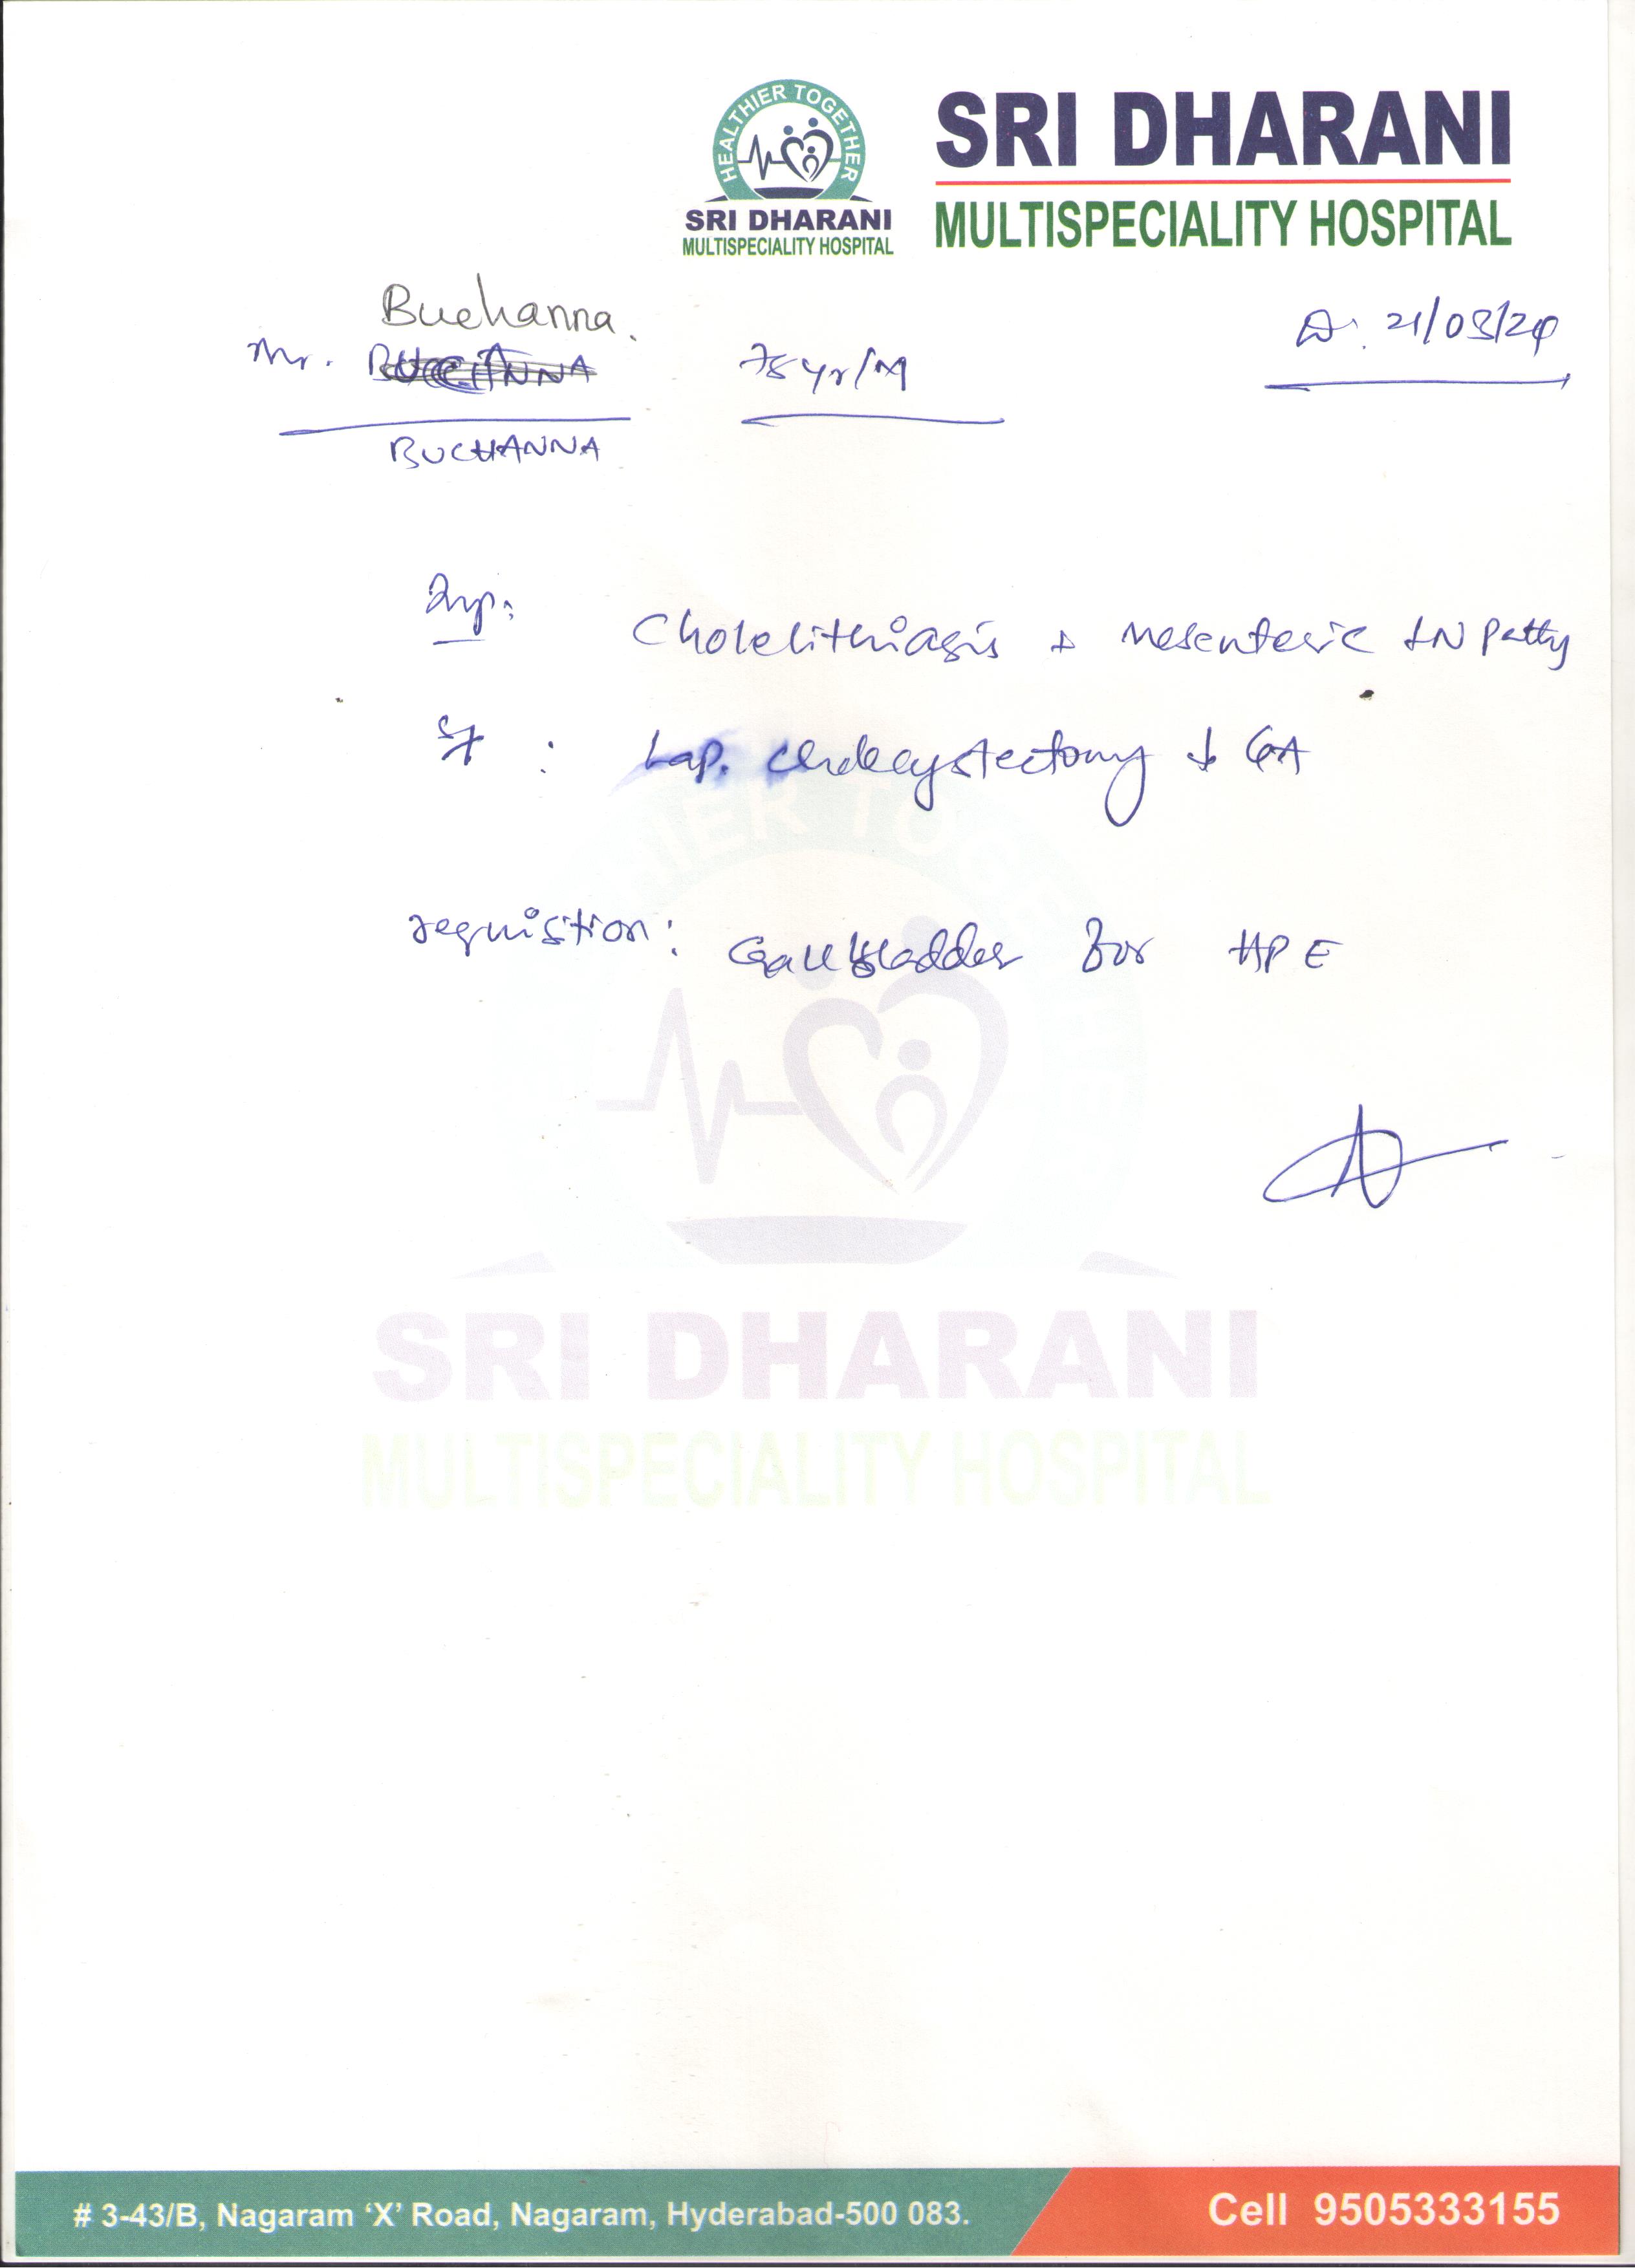 HEALTHIER TOGETHER
SRI DHARANI
MULTISPECIALITY HOSPITAL
SRI DHARANI
MULTISPECIALITY HOSPITAL
Buchanna.
Mr. 75 yr/M D: 21/03/24
BUCHANNA
Imp: Cholelithiasis + Mesenteric LN Pathy
Sx : Lap. Cholecystectomy ↓ GA
requistion: Gallbladder for HPE
SRI DHARANI
MULTISPECIALITY HOSPITAL
# 3-43/B, Nagaram ‘X’ Road, Nagaram, Hyderabad-500 083. Cell 9505333155